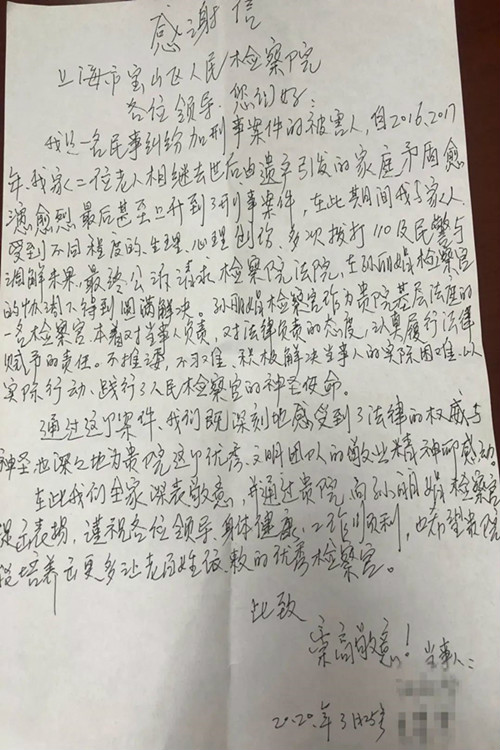 感谢信
上海市宝山区人民检察院
各位领导、您们好:
我是一名民事纠纷加刑事案件的被害人,自2016、2017
年、我家二位老人相继去世后由遗产引发的家庭矛盾愈
演愈烈、最后甚至上升到了刑事案件,在此其间我与家人
受到不同程度的、生理、心理创伤、多次拨打110及民警与
调解未果,最终公诉请求检察院法院、在孙丽娟检察官
的协调下得到圆满解决。孙丽娟检察官作为贵院基层法庭的
一名检察官、本着对当事人负责,对法律负责的态度,认真履行法律
赋予的责任。不推诿,不刁难、积极解决当事人的实际困难、以
实际行动、践行了人民检察官的神圣使命。
通过这个案件、我们既深刻地感受到了法律的权威与
神圣也深深地为贵院这个优秀、文明团队的敬业精神所感动
在此我们全家深表敬意,并通过贵院向孙丽娟检察官
提出表扬,谨祝各位领导、身体健康、工作顺利,也希望贵院
能培养出更多让老百姓信赖的优秀检察官。
此致
崇高敬意! 当事人:
2020年3月25号